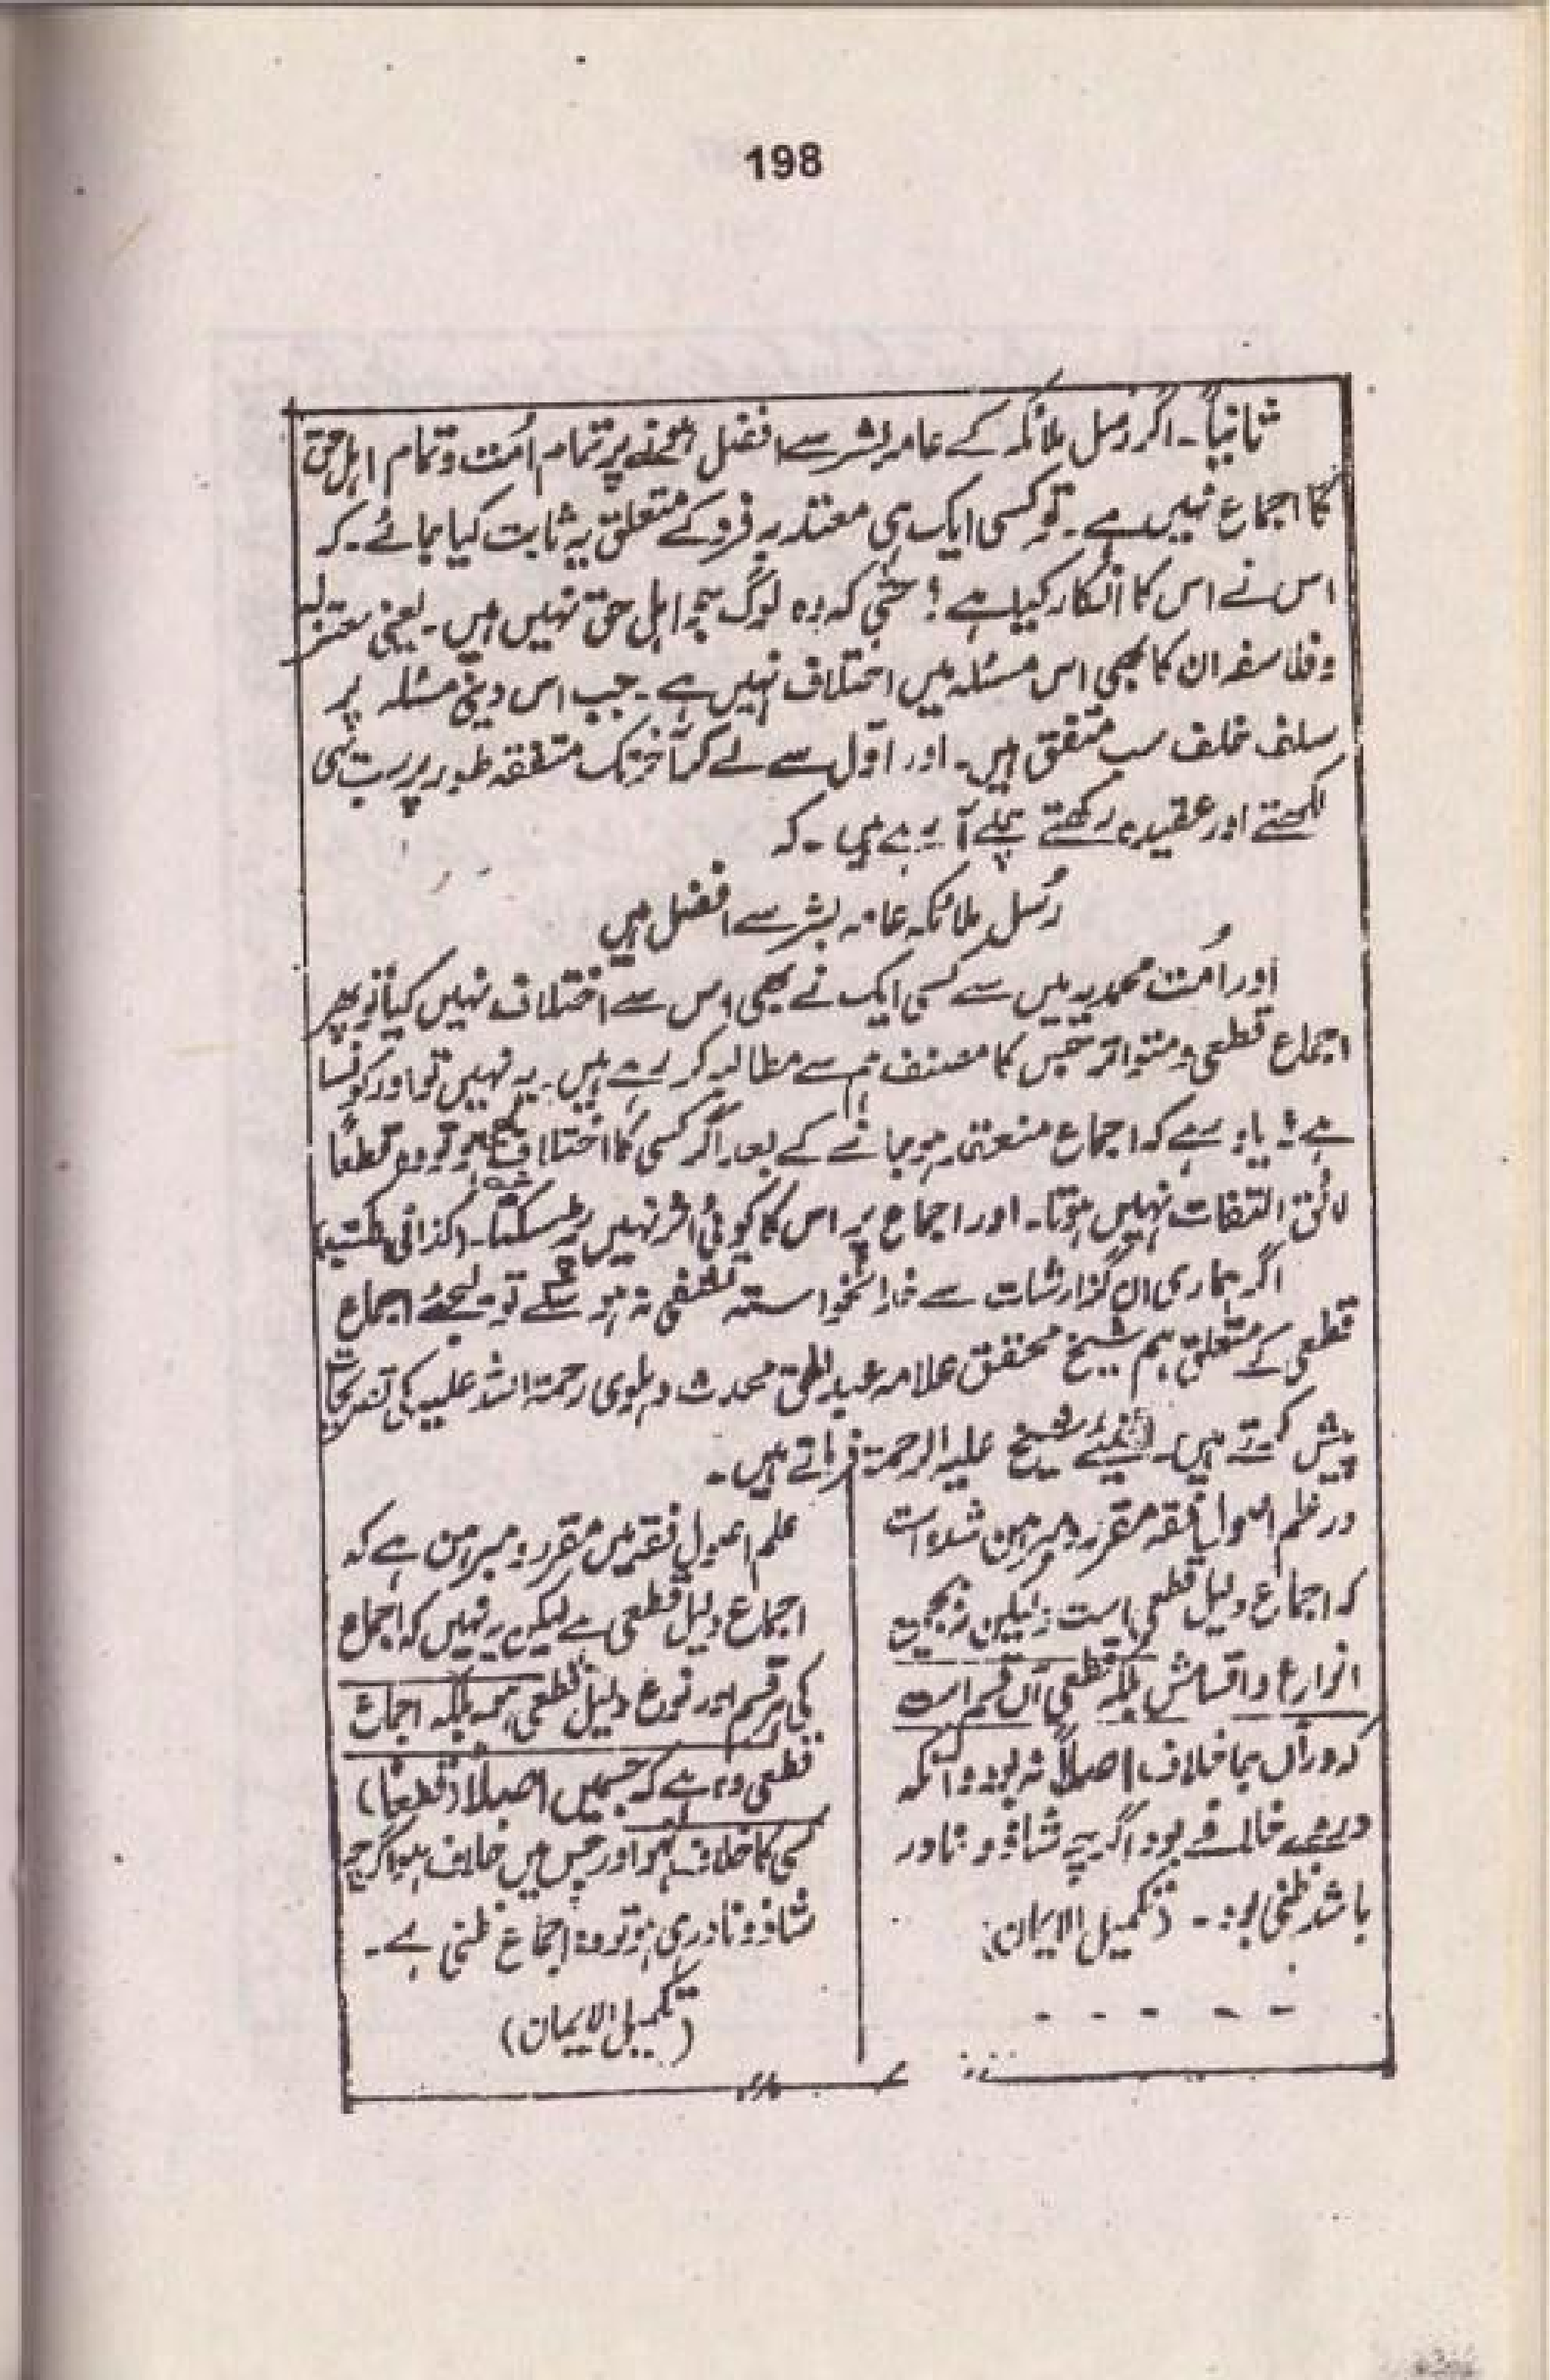 198
ثانیاً۔ اگر رسل ملائکہ کے عامہ بشر سے افضل ہونے پر تمام اُمت و تمام اہل حق
کا اجماع نہیں ہے۔ تو کسی ایک ہی معتد بہ فرد کے متعلق یہ ثابت کیا جائے۔ کہ
اس نے اس کا انکار کیا ہے؛ حتٰی کہ وہ لوگ جو اہل حق نہیں ہیں۔ یعنی معتزلہ
و فلاسفہ ان کا بھی اس مسئلہ میں اختلاف نہیں ہے۔ جب اس دینی مسئلہ پر
سلف خلف سب متفق ہیں۔ اور اوّل سے لے کر آخر تک متفقہ طور پر سب یہی
لکھتے اور عقیدہ رکھتے چلے آ رہے ہیں۔ کہ
رُسل ملائکہ عامہ بشر سے افضل ہیں
اور اُمت محمدیہ میں سے کسی ایک نے بھی اس سے اختلاف نہیں کیا تو پھر
اجماع قطعی و متواتر جس کا مصنف ہم سے مطالبہ کر رہے ہیں۔ یہ نہیں تو اور کونسا
ہے؟ یاد رہے کہ اجماع منعقد ہو جانے کے بعد اگر کسی کا اختلاف ہو تو وہ قطعاً
لائق التفات نہیں ہوتا۔ اور اجماع پر اس کا کوئی اثر نہیں پڑ سکتا۔ (کذا فی کتب
اگر ہماری ان گزارشات سے خدانخواستہ تشفی نہ ہو سکے تو لیجئے اجماع
قطعی کے متعلق ہم شیخ محقق علامہ عبدالحق محدث دہلوی رحمۃ اللہ علیہ کی تصریحات
پیش کرتے ہیں۔ شیخ علیہ الرحمۃ فرماتے ہیں۔
در علم اصول فقہ مقرر و مبرہن شدہ است
کہ اجماع دلیل قطعی است ولیکن نہ جمیع
انواع و اقسامش بلکہ قطعی آں قسم است
کہ در آں جا خلاف اصلاً نہ بود و آنکہ
در وے خلافے بود اگرچہ شاذ و نادر
باشد ظنی بود۔ (تکمیل الایمان)
علم اصول فقہ میں مقرر و مبرہن ہے کہ
اجماع دلیل قطعی ہے لیکن یہ نہیں کہ اجماع
کی ہر قسم اور نوع دلیل قطعی ہو بلکہ اجماع
قطعی وہ ہے کہ جسمیں اصلاً (قطعاً)
کسی کا خلاف نہ ہو اور جس میں خلاف ہو اگرچہ
شاذ و نادر ہی ہو تو وہ اجماع ظنی ہے۔
(تکمیل الایمان)